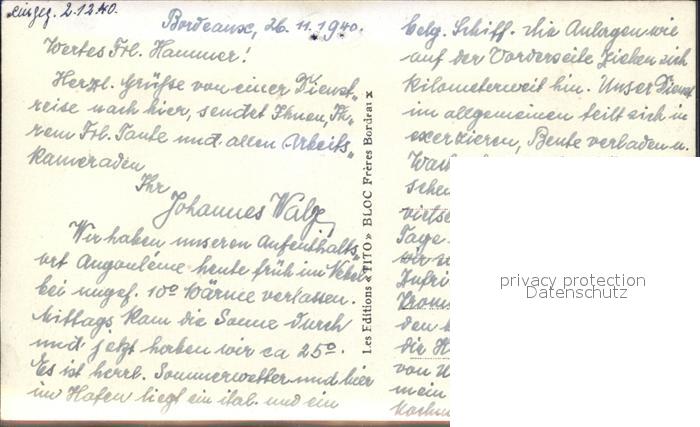 eingeg. 2.12.40.
Bordeaux, 26.11.1940.
Wertes Frl. Hammer!
Herzl. Grüße von einer Dienst„
reise nach hier, sendet Ihnen, Ih„
rem Frl. Tante und allen Arbeits„
kameraden
Ihr
Johannes Walz
Wir haben unseren Aufenthalts„
ort Angouléme heute früh im Nebel
bei ungef. 10° Wärme verlassen.
Mittags kam die Sonne durch
und jetzt haben wir ca 25°.
Es ist herrl. Sommerwetter und hier
im Hafen liegt ein ital. und ein
Les Editions «TITO» BLOC Frères Bordeaux
belg. Schiff. Die Anlagen wie
auf der Vorderseite ziehen sich
kilometerweit hin. Unser Dienst
im allgemeinen teilt sich in
exerzieren, Beute verladen u.
Tage.
den
von
mein
privacy protection
Datenschutz